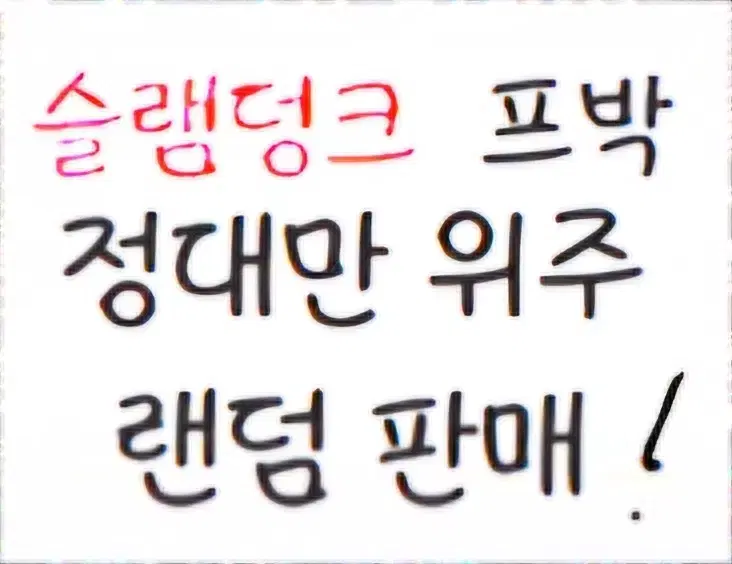 슬램덩크 프박
정대만 위주
랜덤 판매!